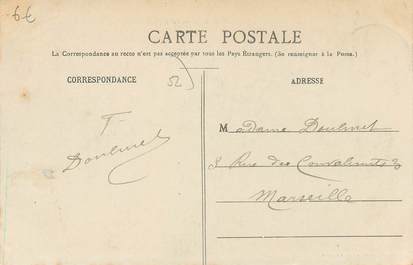 6f
CARTE POSTALE
La Correspondance au recto n'est pas acceptée par tous les Pays Étrangers. (Se renseigner à la Poste.)
CORRESPONDANCE
52
T.
Doulmet
ADRESSE
Madame Doulmet
Rue des Convalescents
Marseille